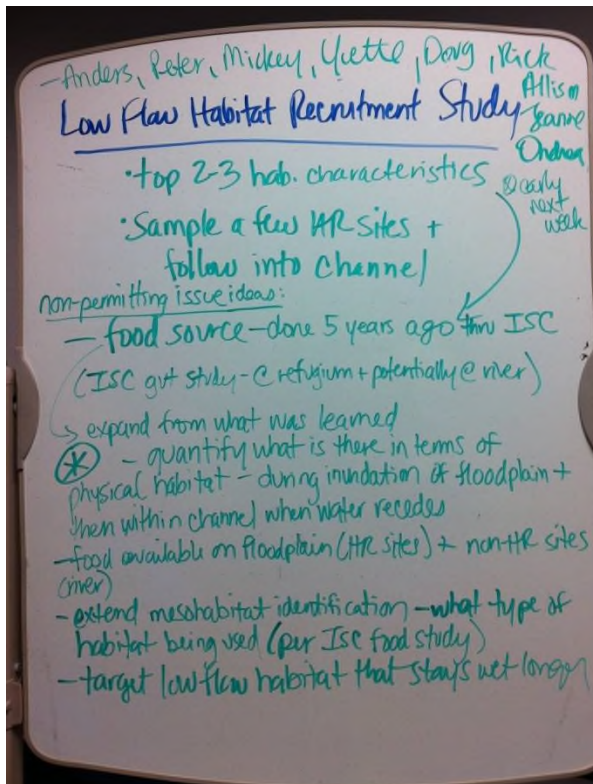 - Anders, Peter, Mickey, Yvette, Doug, Rick
Allison
Jeanne
Ondrea
Low Flow Habitat Recruitment Study
• top 2-3 hab. characteristics
early
next
week
• Sample a few HR sites +
follow into channel
non-permitting issue ideas:
- food source - done 5 years ago thru ISC
(ISC gut study - @ refugium + potentially @ river)
→ expand from what was learned
* - quantify what is there in terms of
physical habitat - during inundation of floodplain +
then within channel when water recedes
- food available on floodplain (HR sites) + non-HR sites
(river)
- extend mesohabitat identification - what type of
habitat being used (per ISC food study)
- target low flow habitat that stays wet longer